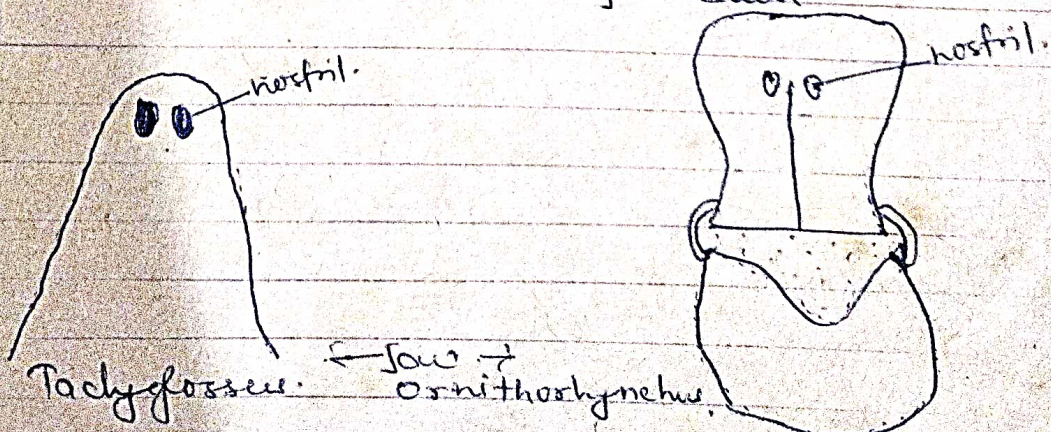 nostril.
nostril.
← Jaw →
Tachyglossus.
Ornithorhynchus.